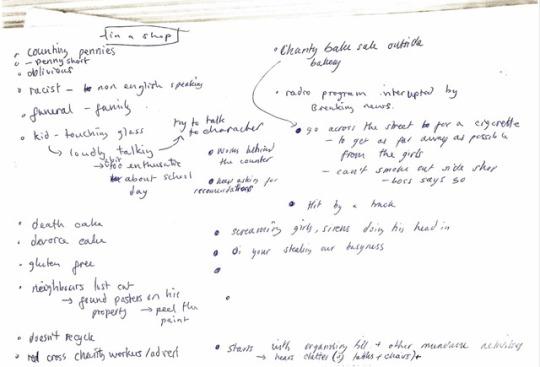 in a shop
counting pennies
- penny short
oblivious
racist - non english speaking
funeral - family
kid - touching glass
loudly talking
too enthusiastic
about school
day
try to talk
to character
works behind
the counter
keep asking for
recomendations
death cake
divorce cake
gluten free
neighbours lost cat
→ found posters on his
property → peel the
paint
doesn't recycle
red cross charity workers/advert
Charity bake sale outside
bakery
radio program interupted by
Breaking news.
go across the street for a cigerette
- to get as far away as possible
from the girls
- can't smoke out side shop
- boss says so
Hit by a truck
screaming girls, sirens doing his head in
Oi your stealing our busyness
starts with organising till + other mundane activities
→ hears clatter (of tables + chairs)